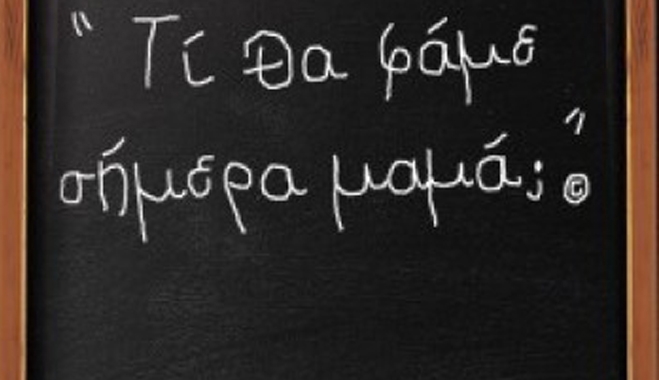 "Τί θα φάμε
σήμερα μαμά; "
©